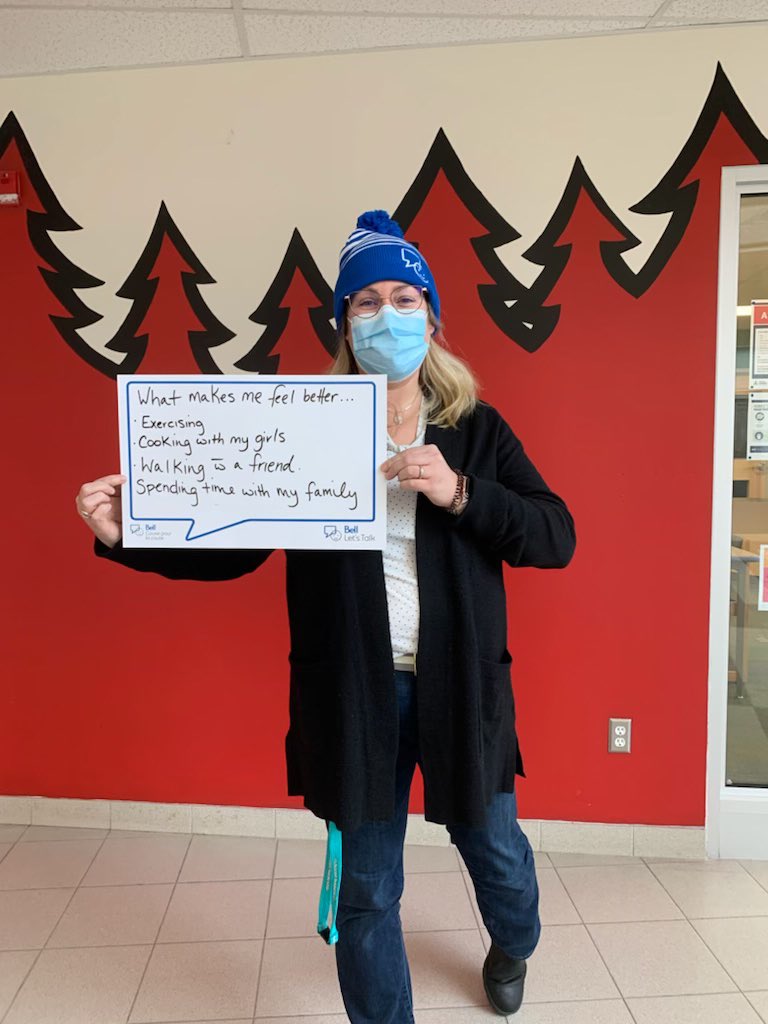 What makes me feel better...
· Exercising
· Cooking with my girls
· Walking c̄ a friend.
Spending time with my family
Bell
Cause pour
la cause
Bell
Let's Talk